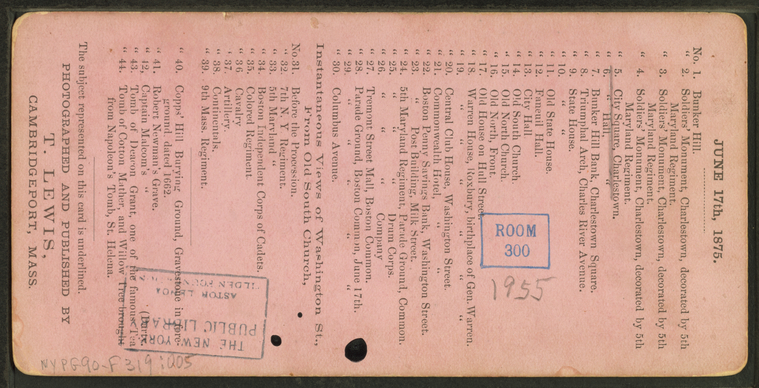 JUNE 17th, 1875.
No. 1. Bunker Hill.
" 2. Soldiers' Monument, Charlestown, decorated by 5th
Maryland Regiment.
" 3. Soldiers' Monument, Charlestown, decorated by 5th
Maryland Regiment.
" 4. Soldiers' Monument, Charlestown, decorated by 5th
Maryland Regiment.
" 5. City Square, Charlestown.
" 6. " Hall, "
" 7. Bunker Hill Bank, Charlestown Square.
" 8. Triumphal Arch, Charles River Avenue.
" 9. State House.
" 10. " "
" 11. Old State House.
" 12. Faneuil Hall.
" 13. City Hall.
" 14. Old South Church.
" 15. Old North Church.
" 16. Old North Front.
" 17. Old House on Hull Street.
" 18. Warren House, Roxbury, birthplace of Gen. Warren.
" 19. " " " " " "
" 20. Central Club House, Washington Street.
" 21. Commonwealth Hotel, " "
" 22. Boston Penny Savings Bank, Washington Street.
" 23. " Post Building, Milk Street.
" 24. 5th Maryland Regiment, Parade Ground, Common.
" 25. " " " Drum Corps.
" 26. " " " Company
" 27. Tremont Street Mall, Boston Common.
" 28. Parade Ground, Boston Common, June 17th.
" 29. " " " " " "
" 30. Columbus Avenue.
Instantaneous Views of Washington St.,
From Old South Church.
No. 31. Before the Procession.
" 32. 7th N. Y. Regiment.
" 33. 5th Maryland "
" 34. Boston Independent Corps of Cadets.
" 35. Colored Regiment.
" 36. Cavalry.
" 37. Artillery.
" 38. Continentals.
" 39. 9th Mass. Regiment.
" 40. Copps' Hill Burying Ground, Gravestone in fore-
ground dated 1662.
" 41. Robert Newman's Grave.
" 42. Captain Malcom's "
" 43. Tomb of Deacon Grant, one of the famous Tea
Party.
" 44. Tomb of Cotton Mather, and Willow Tree brought
from Napoleon's Tomb, St. Helena.
The subject represented on this card is underlined.
PHOTOGRAPHED AND PUBLISHED BY
T. LEWIS,
CAMBRIDGEPORT, MASS.
ROOM
300
1955
THE NEW YORK
PUBLIC LIBRARY
ASTOR, LENOX
TILDEN FOUNDATIONS
NYPG90-F319:005